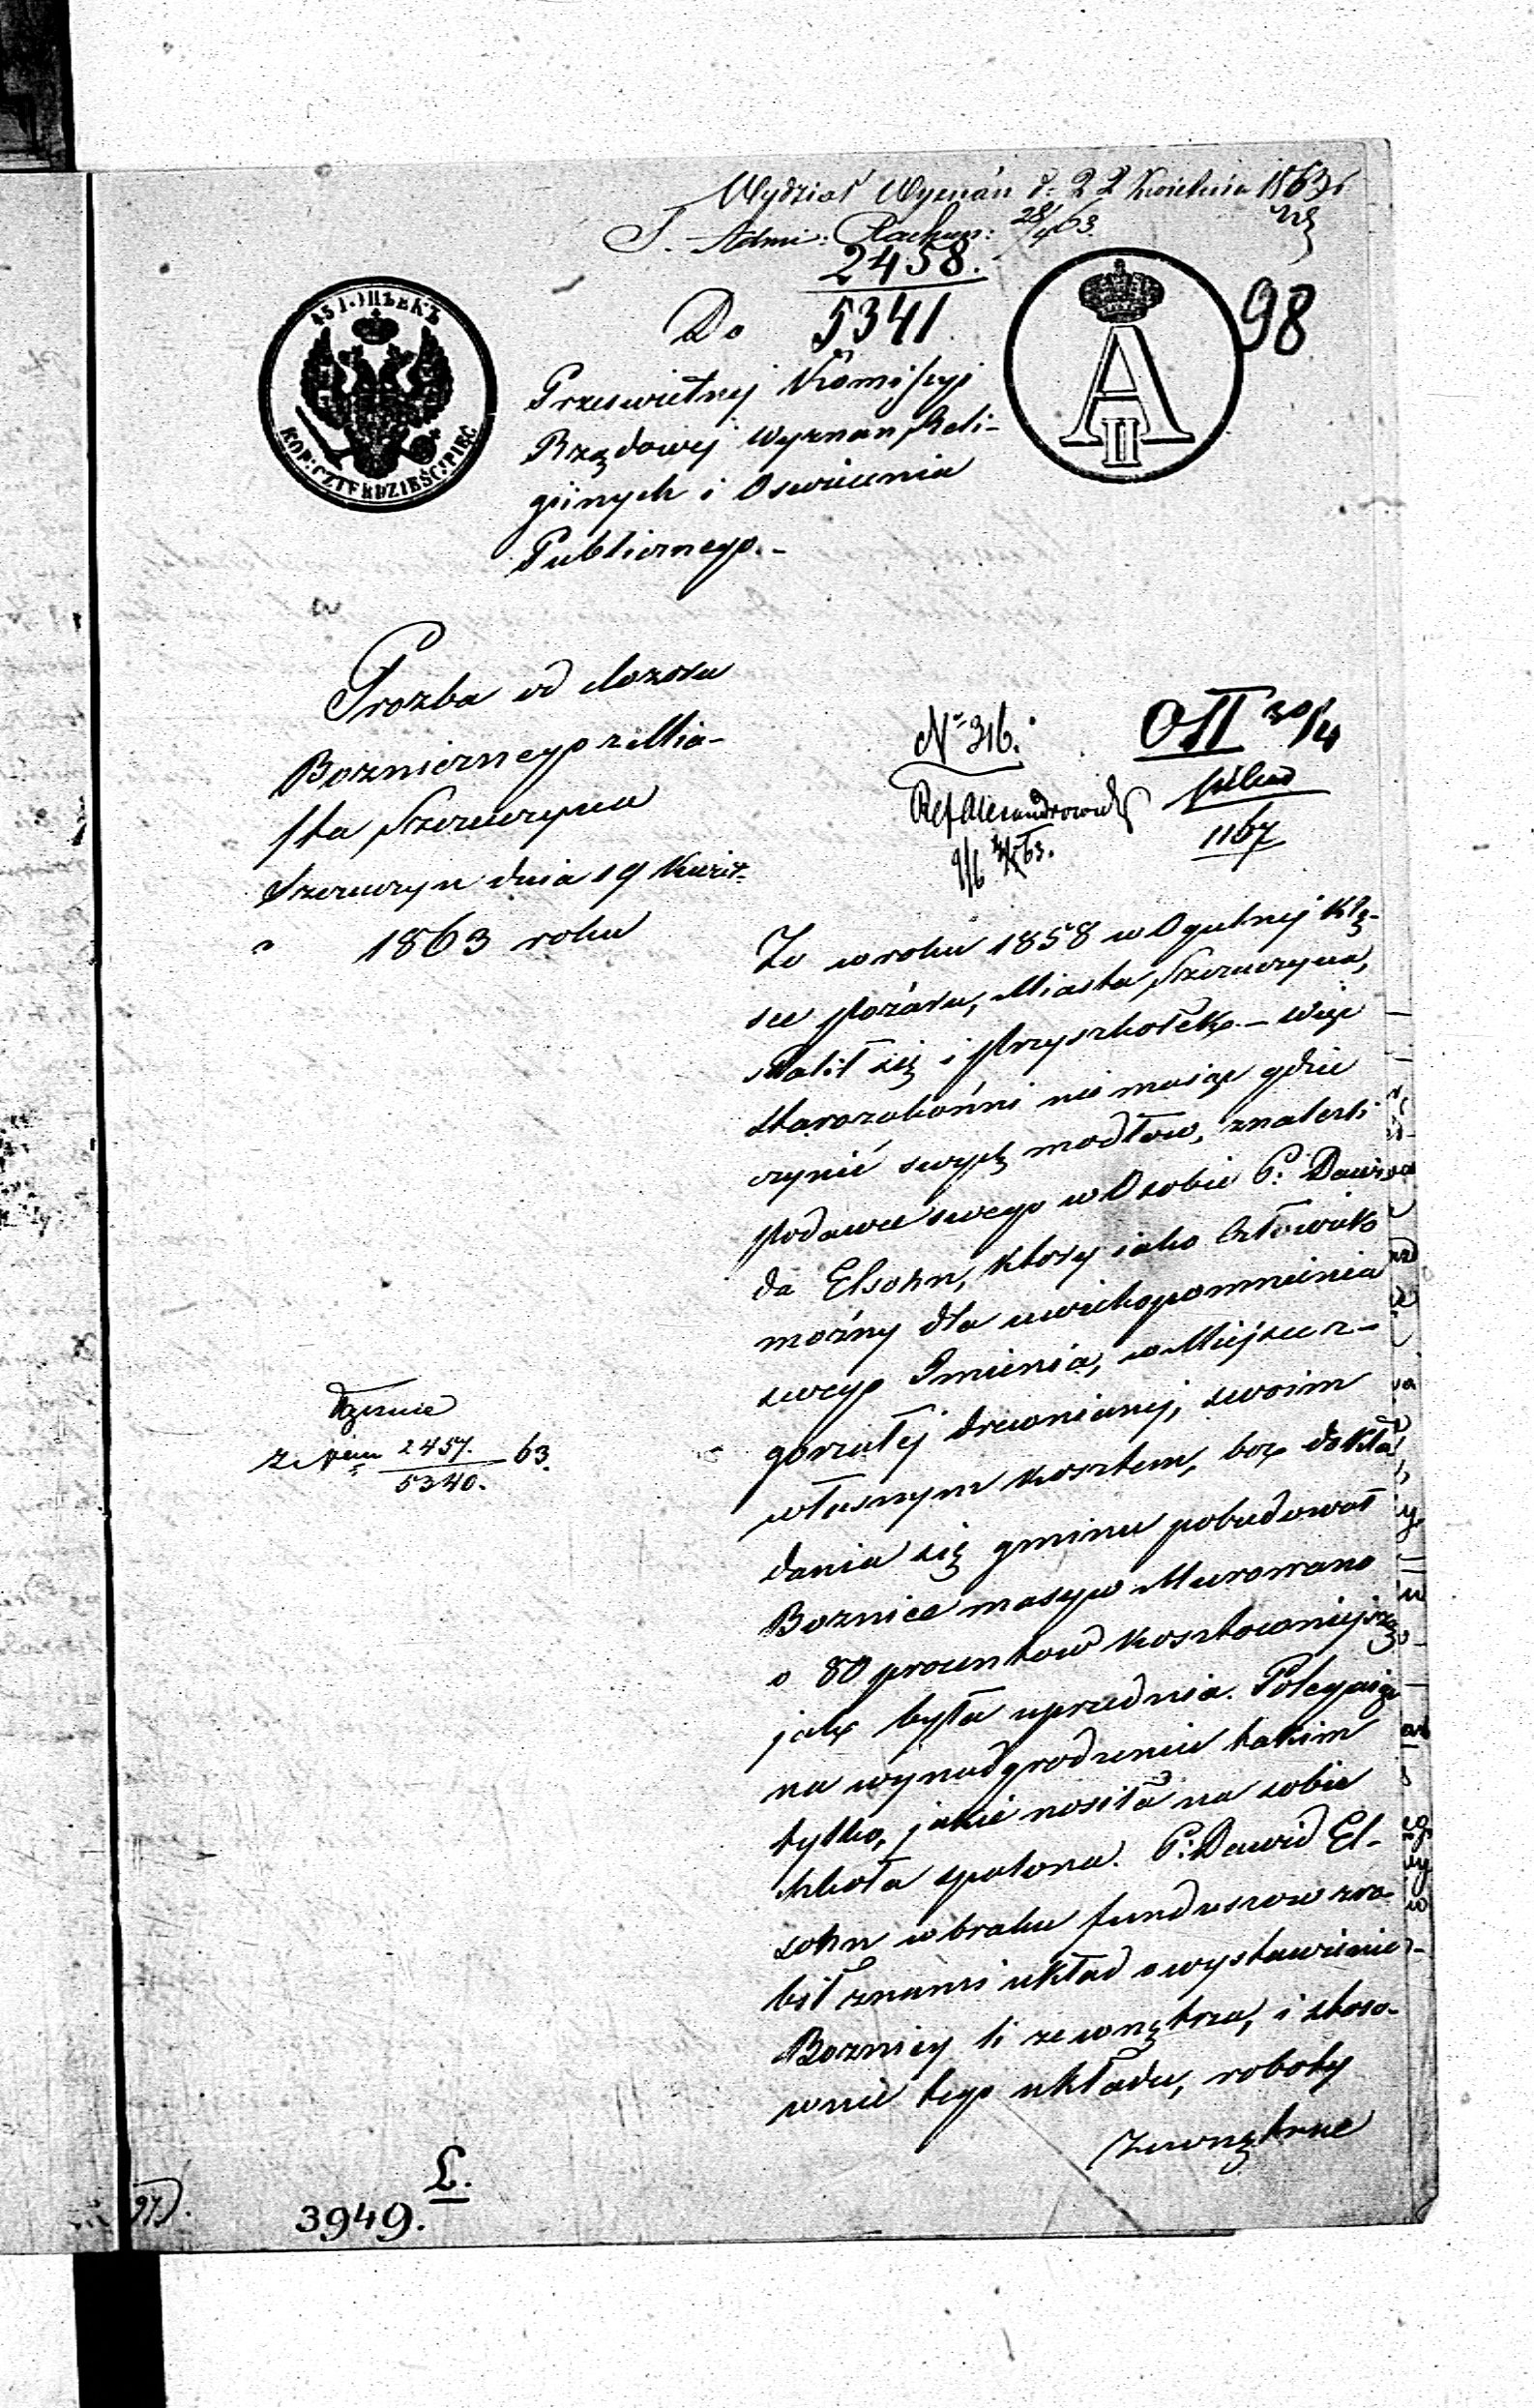 Wydział Wyznán d. 22 Kwietnia 1863 r
S. Admi: Rachun: 28/4 63.
2458.
5341
98
45 КОПѢЕКЪ
KOP: CZTERDZIEŚCI PIĘĆ
A II
Do
Przeswietnej Komissyi
Rządowej Wyznan Reli-
giinych i Oswiecenia
Publicznego.-
Prozba od dozoru
Boznicznego z Mia-
sta Szczuczyna
Szczuczyn dnia 19 Kwiet:
1863 roku
Nº 316.
Ref Alexandrowicz
OII 30/4
1167
Ze w roku 1858 w Ogulnej Klę-
sce pozaru, Miasta Szczuczyna,
spalił się i przyszkołek – więc
starozakonni nie maiąc gdzie
czynić swych modłow, znalezli
podawce swego w Osobie P: Dawi
da Elsohn, ktory iako Człowiek
możny dla uwiekopomnienia
swego Imienia, w Miejscu z-
gorzałej drewnianej, swoim
własnym kosztem, bez dokła
dania się gminu pobudował
Boznice masyw Murowano
o 80 procentow kosztowniejszą
jak była uprzednia. Polegaiąc
na wynadgrodzenie takim
tylko, jakie nosiła na sobie
szkoła spalona. P: Dawid El-
sohn w braku funduszow zro-
bił z nami układ o wystawienie
Boznicy li zewnętrza, i stoso-
wnie tego układu, roboty
zewnętrzne
Łącznie
z Nem 2457. 63.
5340.
L.
3949.
97